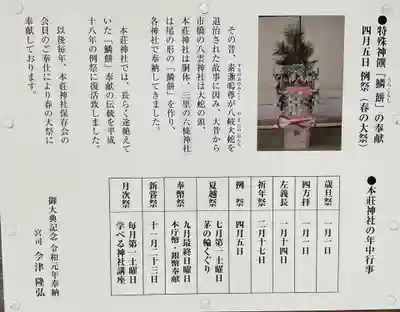 ●特殊神饌「鱗餅」の奉献
うろこもち
四月五日 例祭（春の大祭）
その昔、素盞嗚尊が八岐大蛇を
すさのおのみこと
やまたのおろち
退治された故事に因み、大昔から
市橋の八雲神社は大蛇の頭、
本荘神社は胴体、三里の六條神社
は尾の形の「鱗餅」を作り、
各神社で奉納してきました。
本荘神社では、長らく途絶えて
いた「鱗餅」奉献の伝統を平成
十八年の例祭に復活致しました。
以後毎年、本荘神社保存会の
会員のご奉仕により春の大祭に
奉献しております。
●本荘神社の年中行事
歳旦祭 一月一日
四方拝 一月一日
左義長 一月十四日
祈年祭 二月十七日
例祭 四月五日
夏越祭 七月第一土曜日
茅の輪くぐり
奉幣祭 九月最終日曜日
本庁幣・銀幣奉献
新嘗祭 十一月二十三日
月次祭 毎月第一土曜日
学べる神社講座
御大典記念 令和元年奉納
宮司 今津 隆弘